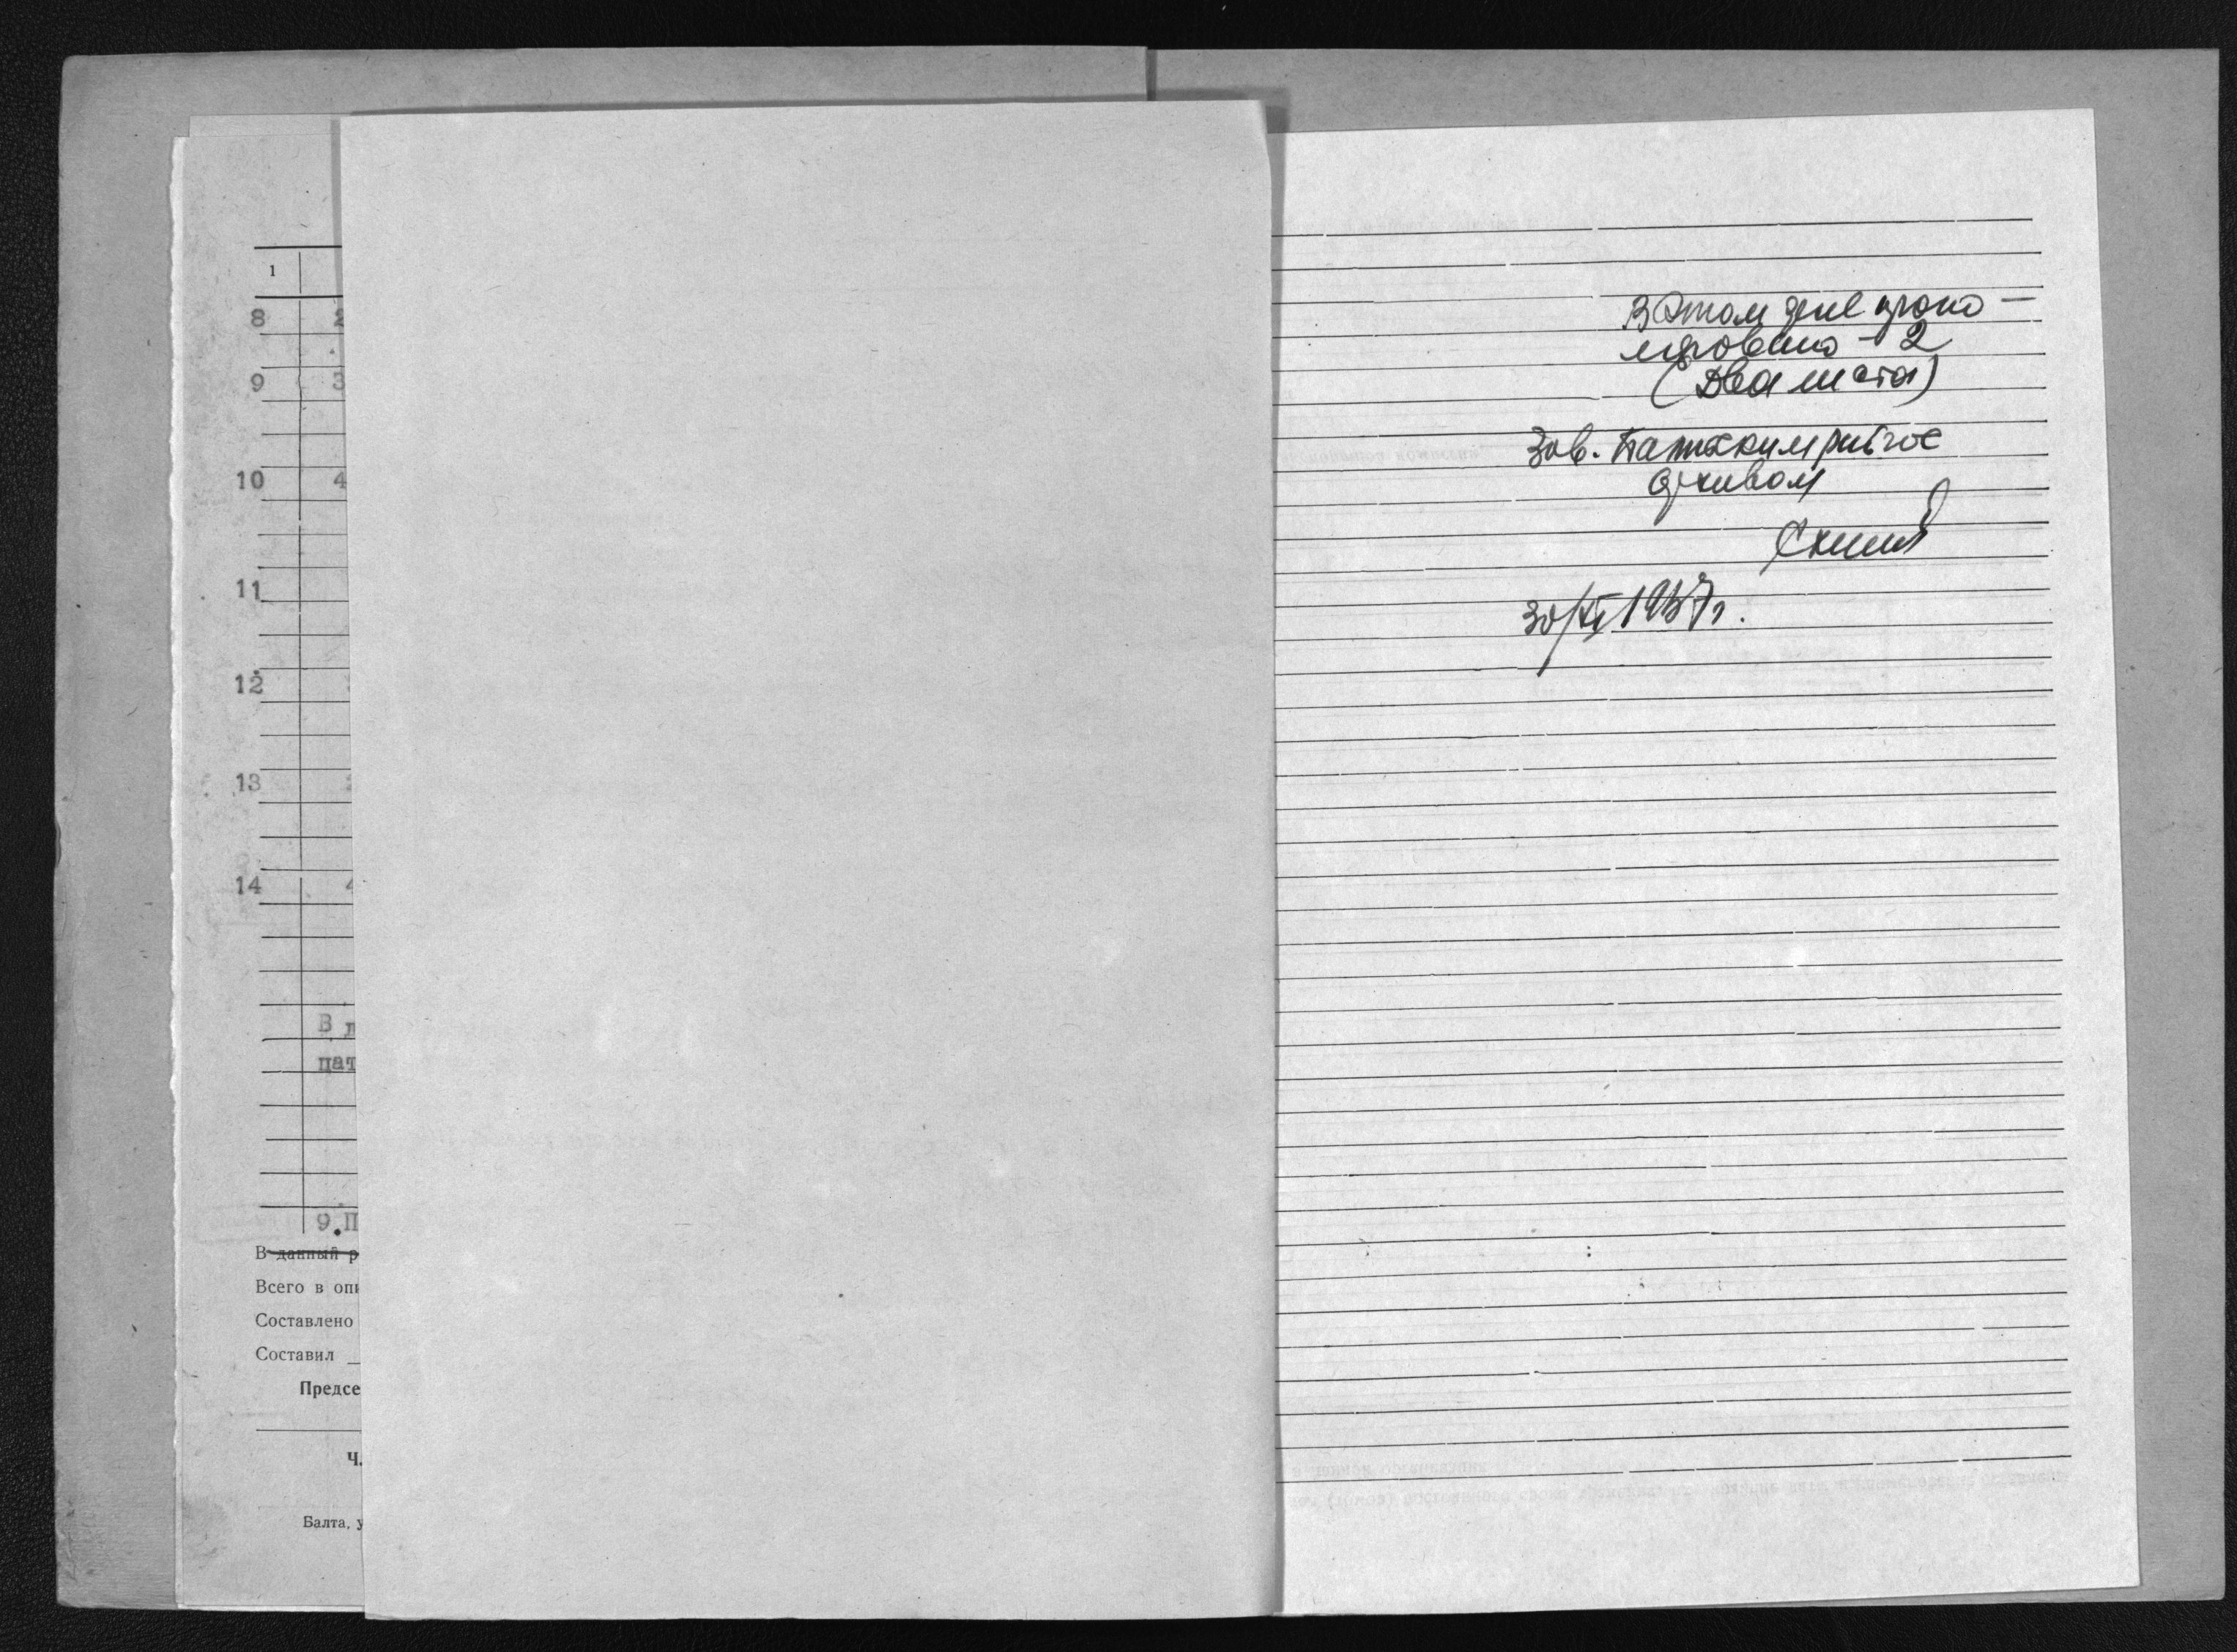 1
8 2
9 3
10 4
11
12
13
14 4
В д
пат
9.П
В данный р
Всего в опи
Составлено
Составил
Предсе
Ч.
Балта, у
В этом деле прону-
мировано - 2
(Два листа)
Зав.
архивом
30/XI 1957г.